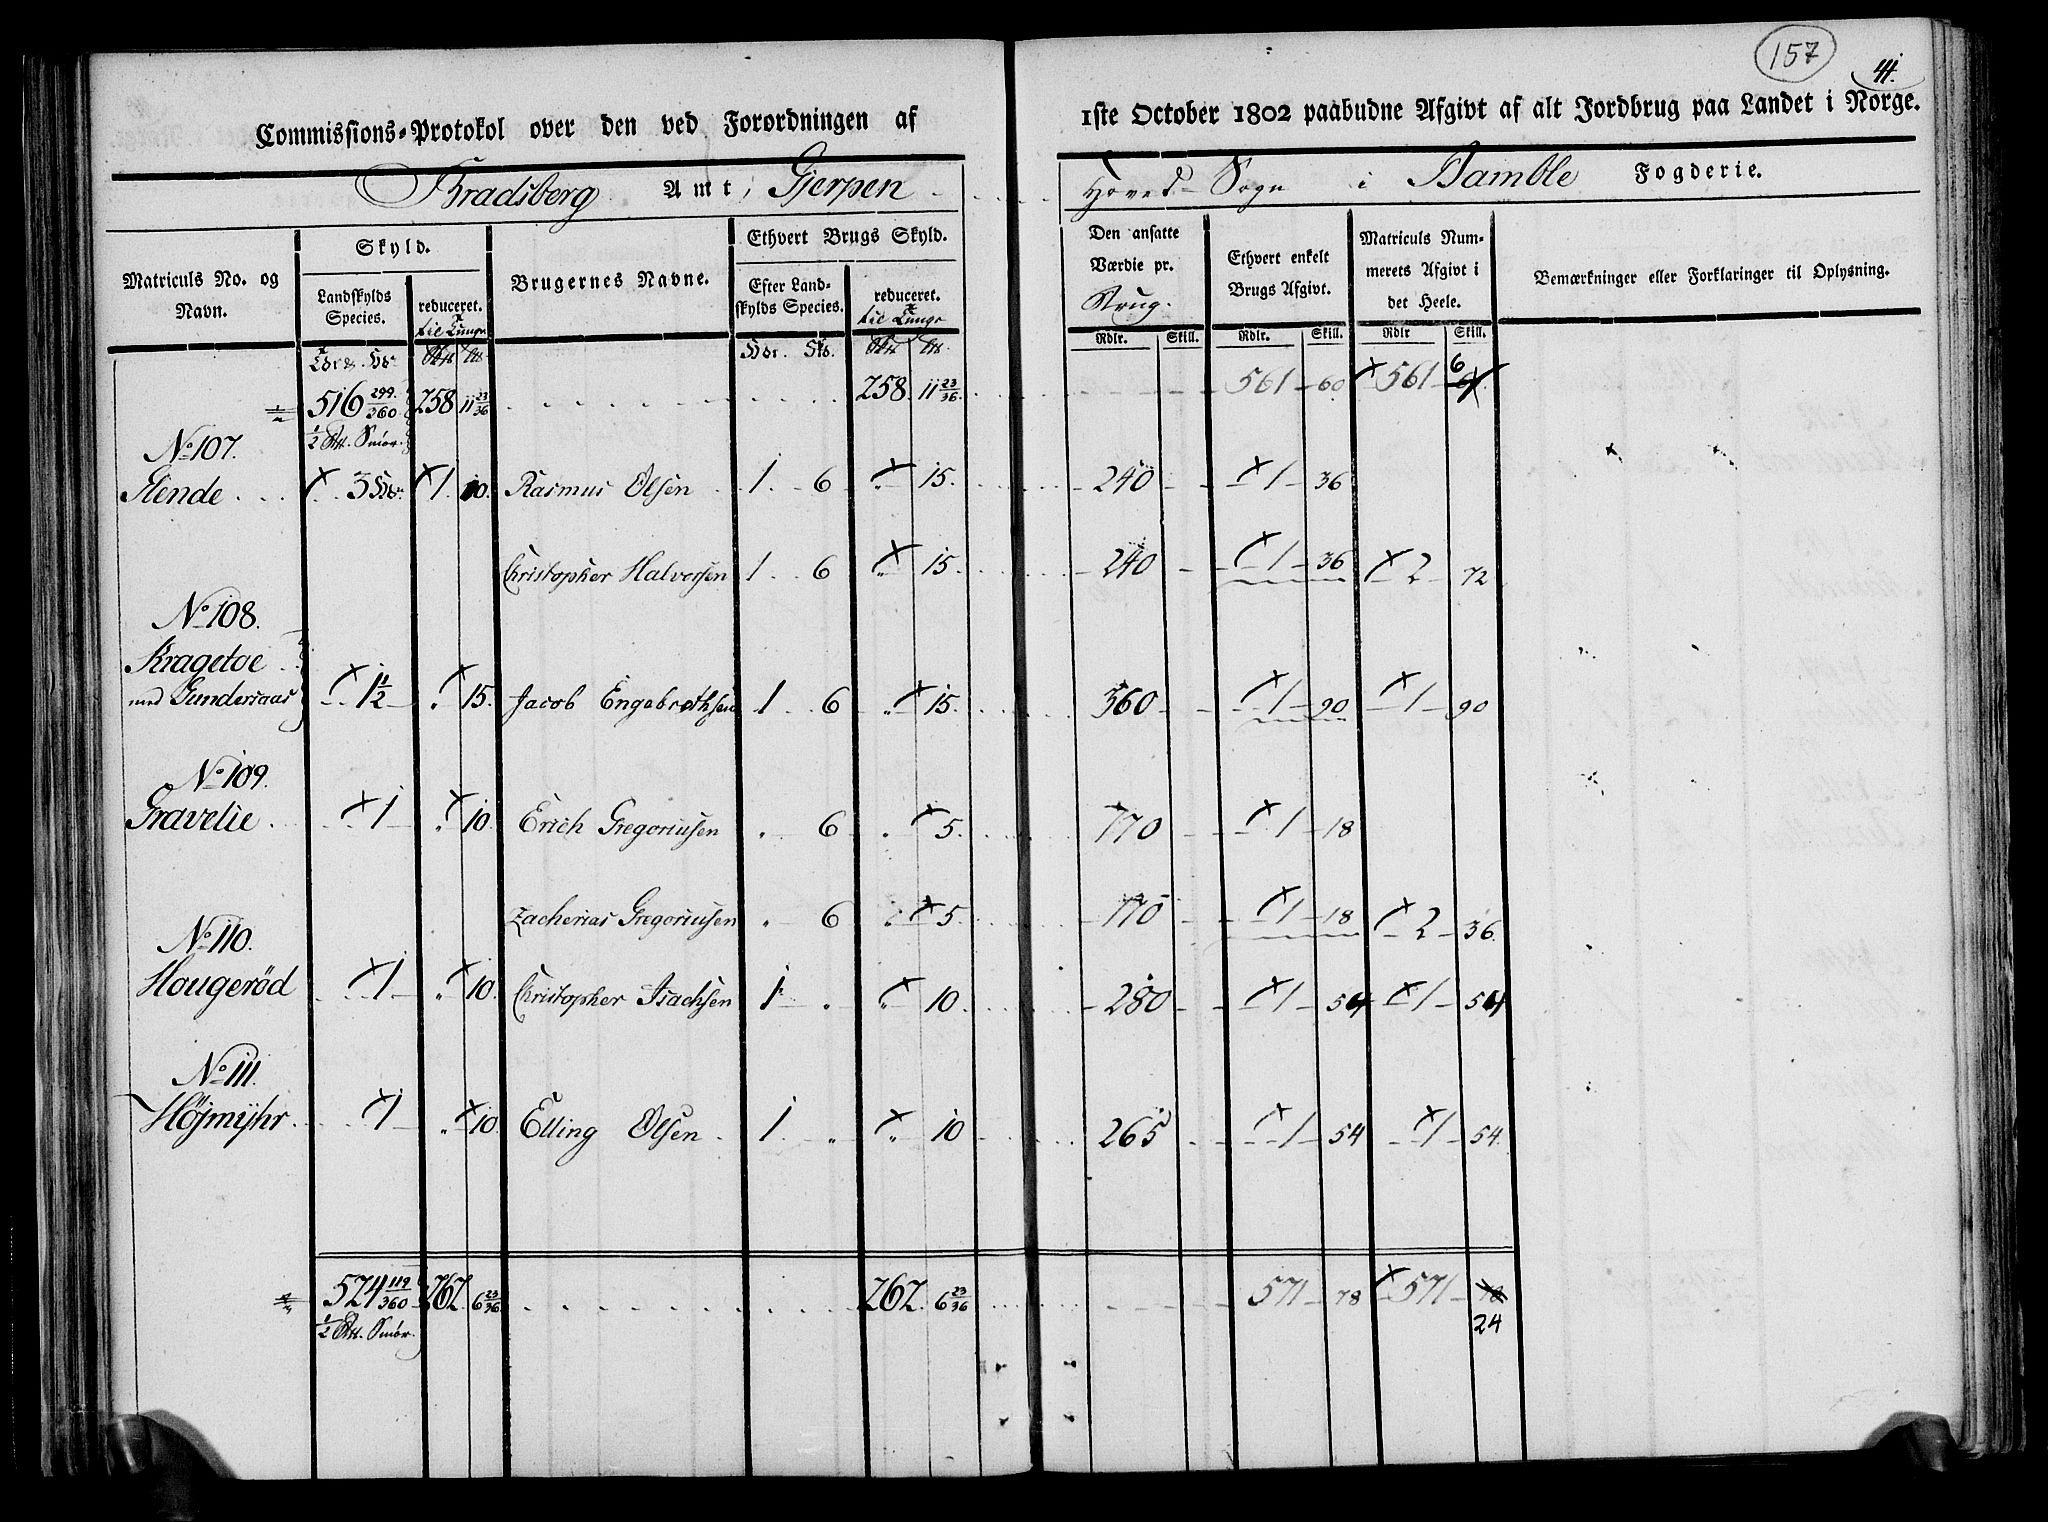 157
41.
Commissions-Protokol over den ved Forordningen af 1ste October 1802 paabudne Afgivt af alt Jordbrug paa Landet i Norge.
Bradsberg Amt, Gjerpen Hoved-Sogn i Bamble Fogderie.
Matriculs No. og Navn.
Skyld.
Landskylds Species.
reduceret. til Tunge
Brugernes Navne.
Ethvert Brugs Skyld.
Efter Landskylds Species.
reduceret. til Tunge
Den ansatte Værdie pr. Brug.
Ethvert enkelt Brugs Afgivt.
Matriculs Nummerets Afgivt i det Heele.
Bemærkninger eller Forklaringer til Oplysning.
Rdlr. Skill. Rdlr. Skill. Rdlr Skill.
516 299/360 258 11 23/36 258. 11 23/36 561 60 561 6
1/2 Smör.
No 107.
Stende 3 1 10. Rasmus Olsen 1 6 " 15. 240 1 36
Christopher Halvorsen 1 6 " 15. 240 1 36 2 72
No 108.
Kragetoe
med Gundersaas 1 1/2 " 15. Jacob Engebrethsen 1 6 " 15. 360 1 90 1 90
No 109.
Gravelie 1 " 10. Erich Gregoriusen " 6 " 5. 170 1 18
Zacherias Gregoriusen " 6 " 5. 170 1 18 2 36.
No 110.
Hougeröd 1 " 10. Christopher Isachsen 1 " " 10. 280 1 54 1 54
No 111.
Höjmÿhr 1 " 10. Elling Olsen 1 " " 10 265 1 54 1 54.
524 119/360 262. 6 23/36 262. 6 23/36 571 78 571 78
1/2 Smör. 24